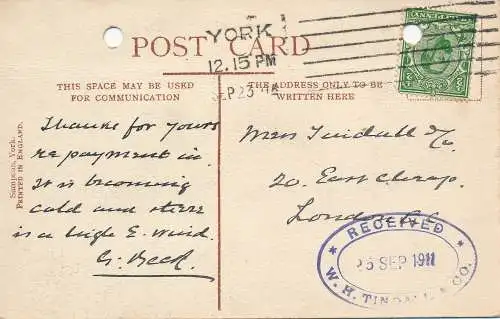 YORK
12.15 PM
SEP 25
POST CARD
THIS SPACE MAY BE USED
FOR COMMUNICATION
THE ADDRESS ONLY TO BE
WRITTEN HERE
Sampson, York.
Printed in England.
Thanks for yours
re payment in.
It is becoming
cold and there
is a high E. Wind.
G. Beck.
Tindall &
20. East Cheap.
London E.C.
RECEIVED
25 SEP 1911
W. H. TINDALL & CO.